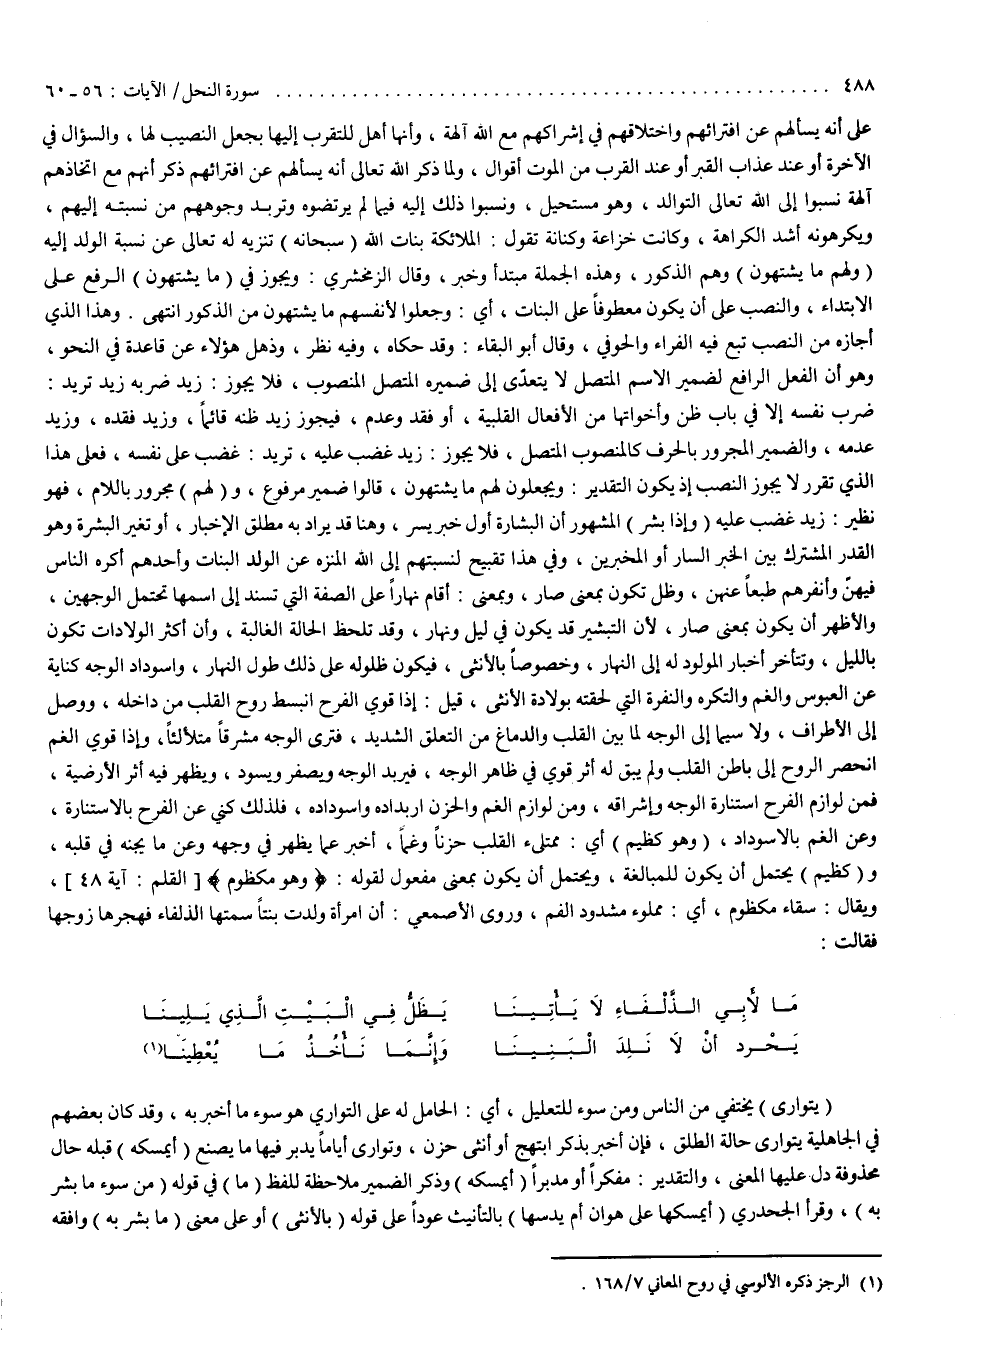 ٤٨٨ ................................................ سورة النحل/ الآيات : ٥٦ - ٦٠
على أنه يسألهم عن افترائهم واختلاقهم في إشراكهم مع الله آلهة ، وأنها أهل للتقرب إليها بجعل النصيب لها ، والسؤال في
الآخرة أو عند عذاب القبر أو عند القرب من الموت أقوال ، ولما ذكر الله تعالى أنه يسألهم عن افترائهم ذكر أنهم مع اتخاذهم
آلهة نسبوا إلى الله تعالى التوالد ، وهو مستحيل ، ونسبوا ذلك إليه فيما لم يرتضوه وتربد وجوههم من نسبته إليهم ،
ويكرهونه أشد الكراهة ، وكانت خزاعة وكنانة تقول : الملائكة بنات الله ( سبحانه ) تنزيه له تعالى عن نسبة الولد إليه
( ولهم ما يشتهون ) وهم الذكور ، وهذه الجملة مبتدأ وخبر ، وقال الزمخشري : ويجوز في ( ما يشتهون ) الرفع على
الابتداء ، والنصب على أن يكون معطوفاً على البنات ، أي : وجعلوا لأنفسهم ما يشتهون من الذكور انتهى . وهذا الذي
أجازه من النصب تبع فيه الفراء والحوفي ، وقال أبو البقاء : وقد حكاه ، وفيه نظر ، وذهل هؤلاء عن قاعدة في النحو ،
وهو أن الفعل الرافع لضمير الاسم المتصل لا يتعدّى إلى ضميره المتصل المنصوب ، فلا يجوز : زيد ضربه زيد تريد :
ضرب نفسه إلا في باب ظن وأخواتها من الأفعال القلبية ، أو فقد وعدم ، فيجوز زيد ظنه قائماً ، وزيد فقده ، وزيد
عدمه ، والضمير المجرور بالحرف كالمنصوب المتصل ، فلا يجوز : زيد غضب عليه ، تريد : غضب على نفسه ، فعلى هذا
الذي تقرر لا يجوز النصب إذ يكون التقدير : ويجعلون لهم ما يشتهون ، قالوا ضمير مرفوع ، و ( لهم ) مجرور باللام ، فهو
نظير : زيد غضب عليه ( وإذا بشر ) المشهور أن البشارة أول خبر يسر ، وهنا قد يراد به مطلق الإخبار ، أو تغير البشرة وهو
القدر المشترك بين الخبر السار أو المخبرين ، وفي هذا تقبيح لنسبتهم إلى الله المنزه عن الولد البنات وأحدهم أكره الناس
فيهنّ وأنفرهم طبعاً عنهن ، وظل تكون بمعنى صار ، وبمعنى : أقام نهاراً على الصفة التي تسند إلى اسمها تحتمل الوجهين ،
والأظهر أن يكون بمعنى صار ، لأن التبشير قد يكون في ليل ونهار ، وقد تلحظ الحالة الغالبة ، وأن أكثر الولادات تكون
بالليل ، وتتأخر أخبار المولود له إلى النهار ، وخصوصاً بالأنثى ، فيكون ظلوله على ذلك طول النهار ، واسوداد الوجه كناية
عن العبوس والغم والتكره والنفرة التي لحقته بولادة الأنثى ، قيل : إذا قوي الفرح انبسط روح القلب من داخله ، ووصل
إلى الأطراف ، ولا سيما إلى الوجه لما بين القلب والدماغ من التعلق الشديد ، فترى الوجه مشرقاً متلألئاً، وإذا قوي الغم
انحصر الروح إلى باطن القلب ولم يبق له أثر قوي في ظاهر الوجه ، فيربد الوجه ويصفر ويسود ، ويظهر فيه أثر الأرضية ،
فمن لوازم الفرح استنارة الوجه وإشراقه ، ومن لوازم الغم والحزن اربداده واسوداده ، فلذلك كني عن الفرح بالاستنارة ،
وعن الغم بالاسوداد ، ( وهو كظيم ) أي : ممتلىء القلب حزناً وغماً ، أخبر عما يظهر في وجهه وعن ما يجنه في قلبه ،
و ( كظيم ) يحتمل أن يكون للمبالغة ، ويحتمل أن يكون بمعنى مفعول لقوله : ﴿ وهو مكظوم ﴾ [ القلم : آية ٤٨ ] ،
ويقال : سقاء مكظوم ، أي : مملوء مشدود الفم ، وروى الأصمعي : أن امرأة ولدت بنتاً سمتها الذلفاء فهجرها زوجها
فقالت :
مَا لأَبِي الذَّلْفَاءِ لَا يَأْتِينَا يَظَلُّ فِي الْبَيْتِ الَّذِي يَلِينَا
يَحْرد أنْ لَا نَلِدَ الْبَنِينَا وَإِنَّمَا نَأْخُذُ مَا يُعْطِينَا(١)
( يتوارى ) يختفي من الناس ومن سوء للتعليل ، أي : الحامل له على التواري هو سوء ما أخبر به ، وقد كان بعضهم
في الجاهلية يتوارى حالة الطلق ، فإن أخبر بذكر ابتهج أو أنثى حزن ، وتوارى أياماً يدبر فيها ما يصنع ( أيمسكه ) قبله حال
محذوفة دل عليها المعنى ، والتقدير : مفكراً أو مدبراً ( أيمسكه ) وذكر الضمير ملاحظة للفظ ( ما ) في قوله ( من سوء ما بشر
به ) ، وقرأ الجحدري ( أيمسكها على هوان أم يدسها ) بالتأنيث عوداً على قوله ( بالأنثى ) أو على معنى ( ما بشر به ) وافقه
(١) الرجز ذكره الألوسي في روح المعاني ١٦٨/٧ .